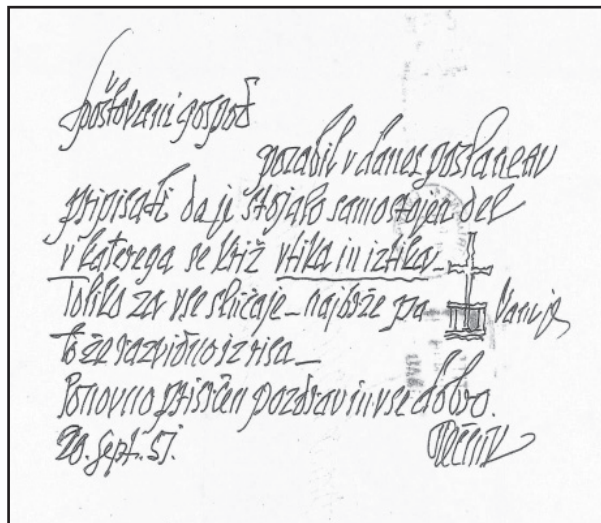 spoštovani gospod
pozabil v danes poslanem
pripisati da je stojalo samostojen del
v katerega se križ vtika in iztika_
Toliko za vse slučaje_najbrže pa Vam je
to že razvidno iz risa_
Ponovno prisrčen pozdrav in vse dobro.
20. sept. 57.